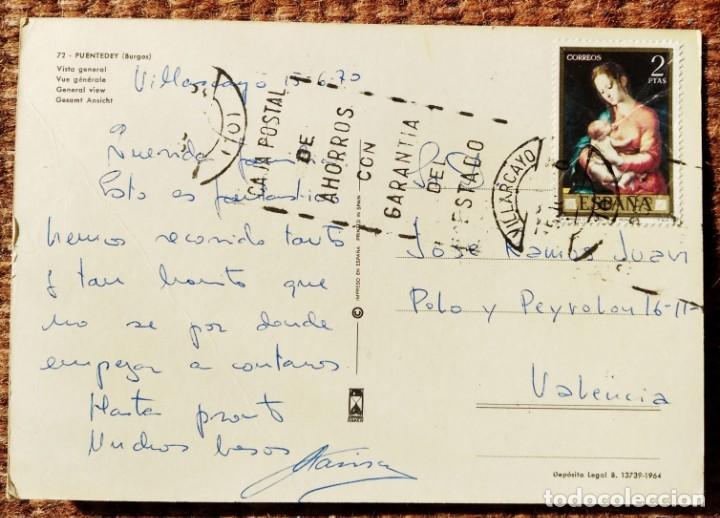 72 - PUENTEDEY (Burgos)
Vista general
Vue générale
General view
Gesamt Ansicht
Villarcayo 6.70
Querida familia
Esto es fantástico
hemos recorrido tanto
y tan bonito que
no se por donde
empezar a contaros
Hasta pronto
Muchos besos
IMPRESO EN ESPAÑA PRINTED IN SPAIN
©
CAJA POSTAL
DE
AHORROS
CON
GARANTIA
DEL
ESTADO
VILLARCAYO
CORREOS
2
PTAS
ESPAÑA
Sr. D.
José Ramos Juan
Polo y Peyrolon 16-11
Valencia
Depósito Legal B. 13739-1964
todocoleccion
todocoleccion.net